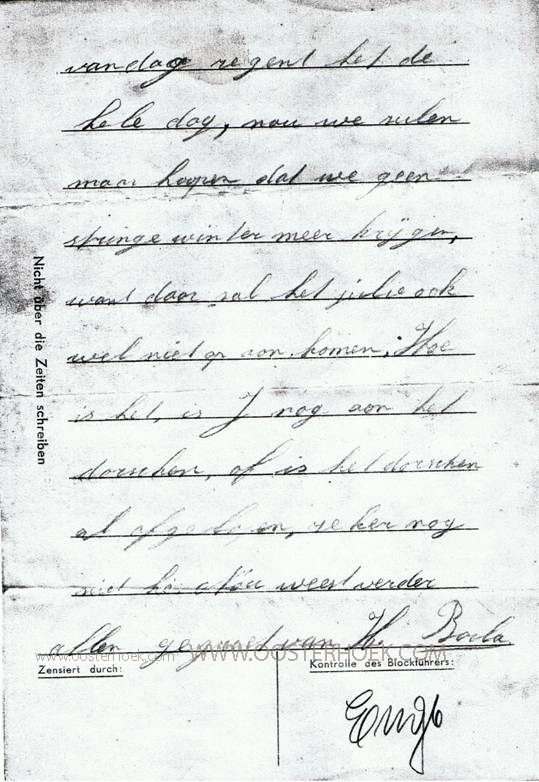 vandag regent het de
hele dag, nou we zulen
maar hoopen dat we geen
strenge winter meer krijgen,
want daar zal het julie ook
wel niet op aan komen. Hoe
is het, is J nog aan het
dorschen, of is het dorschen
al afgelopen, zeker nog
niet weest verder
allen gegroet van H. Bo
Nicht über die Zeiten schreiben
www.oosterhoek.com WWW.OOSTERHOEK.COM
Zensiert durch:
Kontrolle des Blockführers: